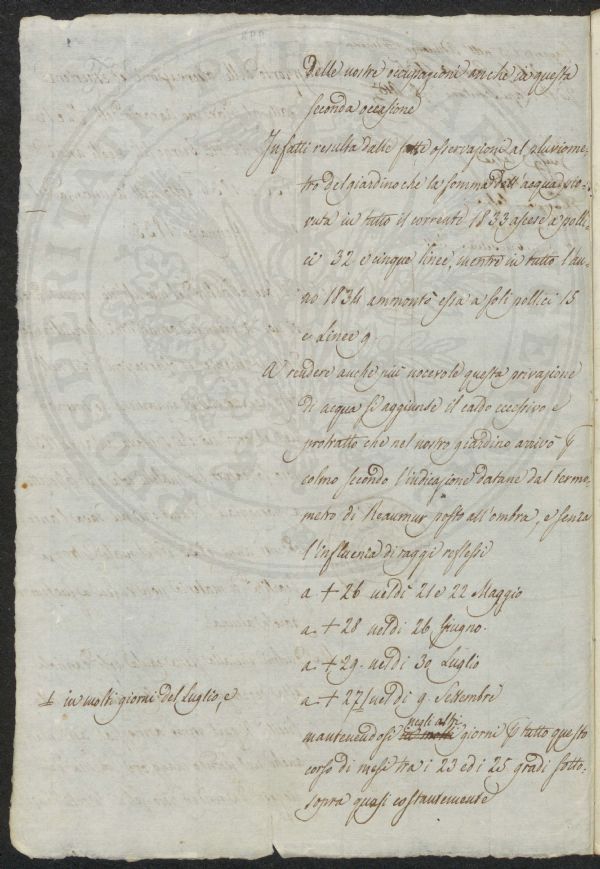 delle nostre occupazioni anche in questa
seconda occasione
Infatti resulta dalle fatte osservazioni al pluviome-
tro del giardino che la somma dell'acqua pio-
vuta in tutto il corrente 1833 ascese a polli-
ci 32 e cinque linee, mentre in tutto l'an-
no 1834 ammontò essa a soli pollici 15
e linee 9.
A rendere anche più nocevole questa privazione
di acqua si aggiunse il caldo eccessivo e
protratto che nel nostro giardino arrivò p
colmo secondo l'indicazione datane dal termo-
metro di Reaumur posto all'ombra, e senza
l'influenza di raggi reflessi
a + 26 nel dì 21 e 22 Maggio
a + 28 nel dì 26 Giugno.
a + 29 nel dì 30 Luglio
in molti giorni del Luglio, e
a + 27 nel dì 9 Settembre
negli altri
mantenendosi in molti giorni p tutto questo
corso di mesi tra i 23 ed i 25 gradi sotto-
sopra quasi costantemente